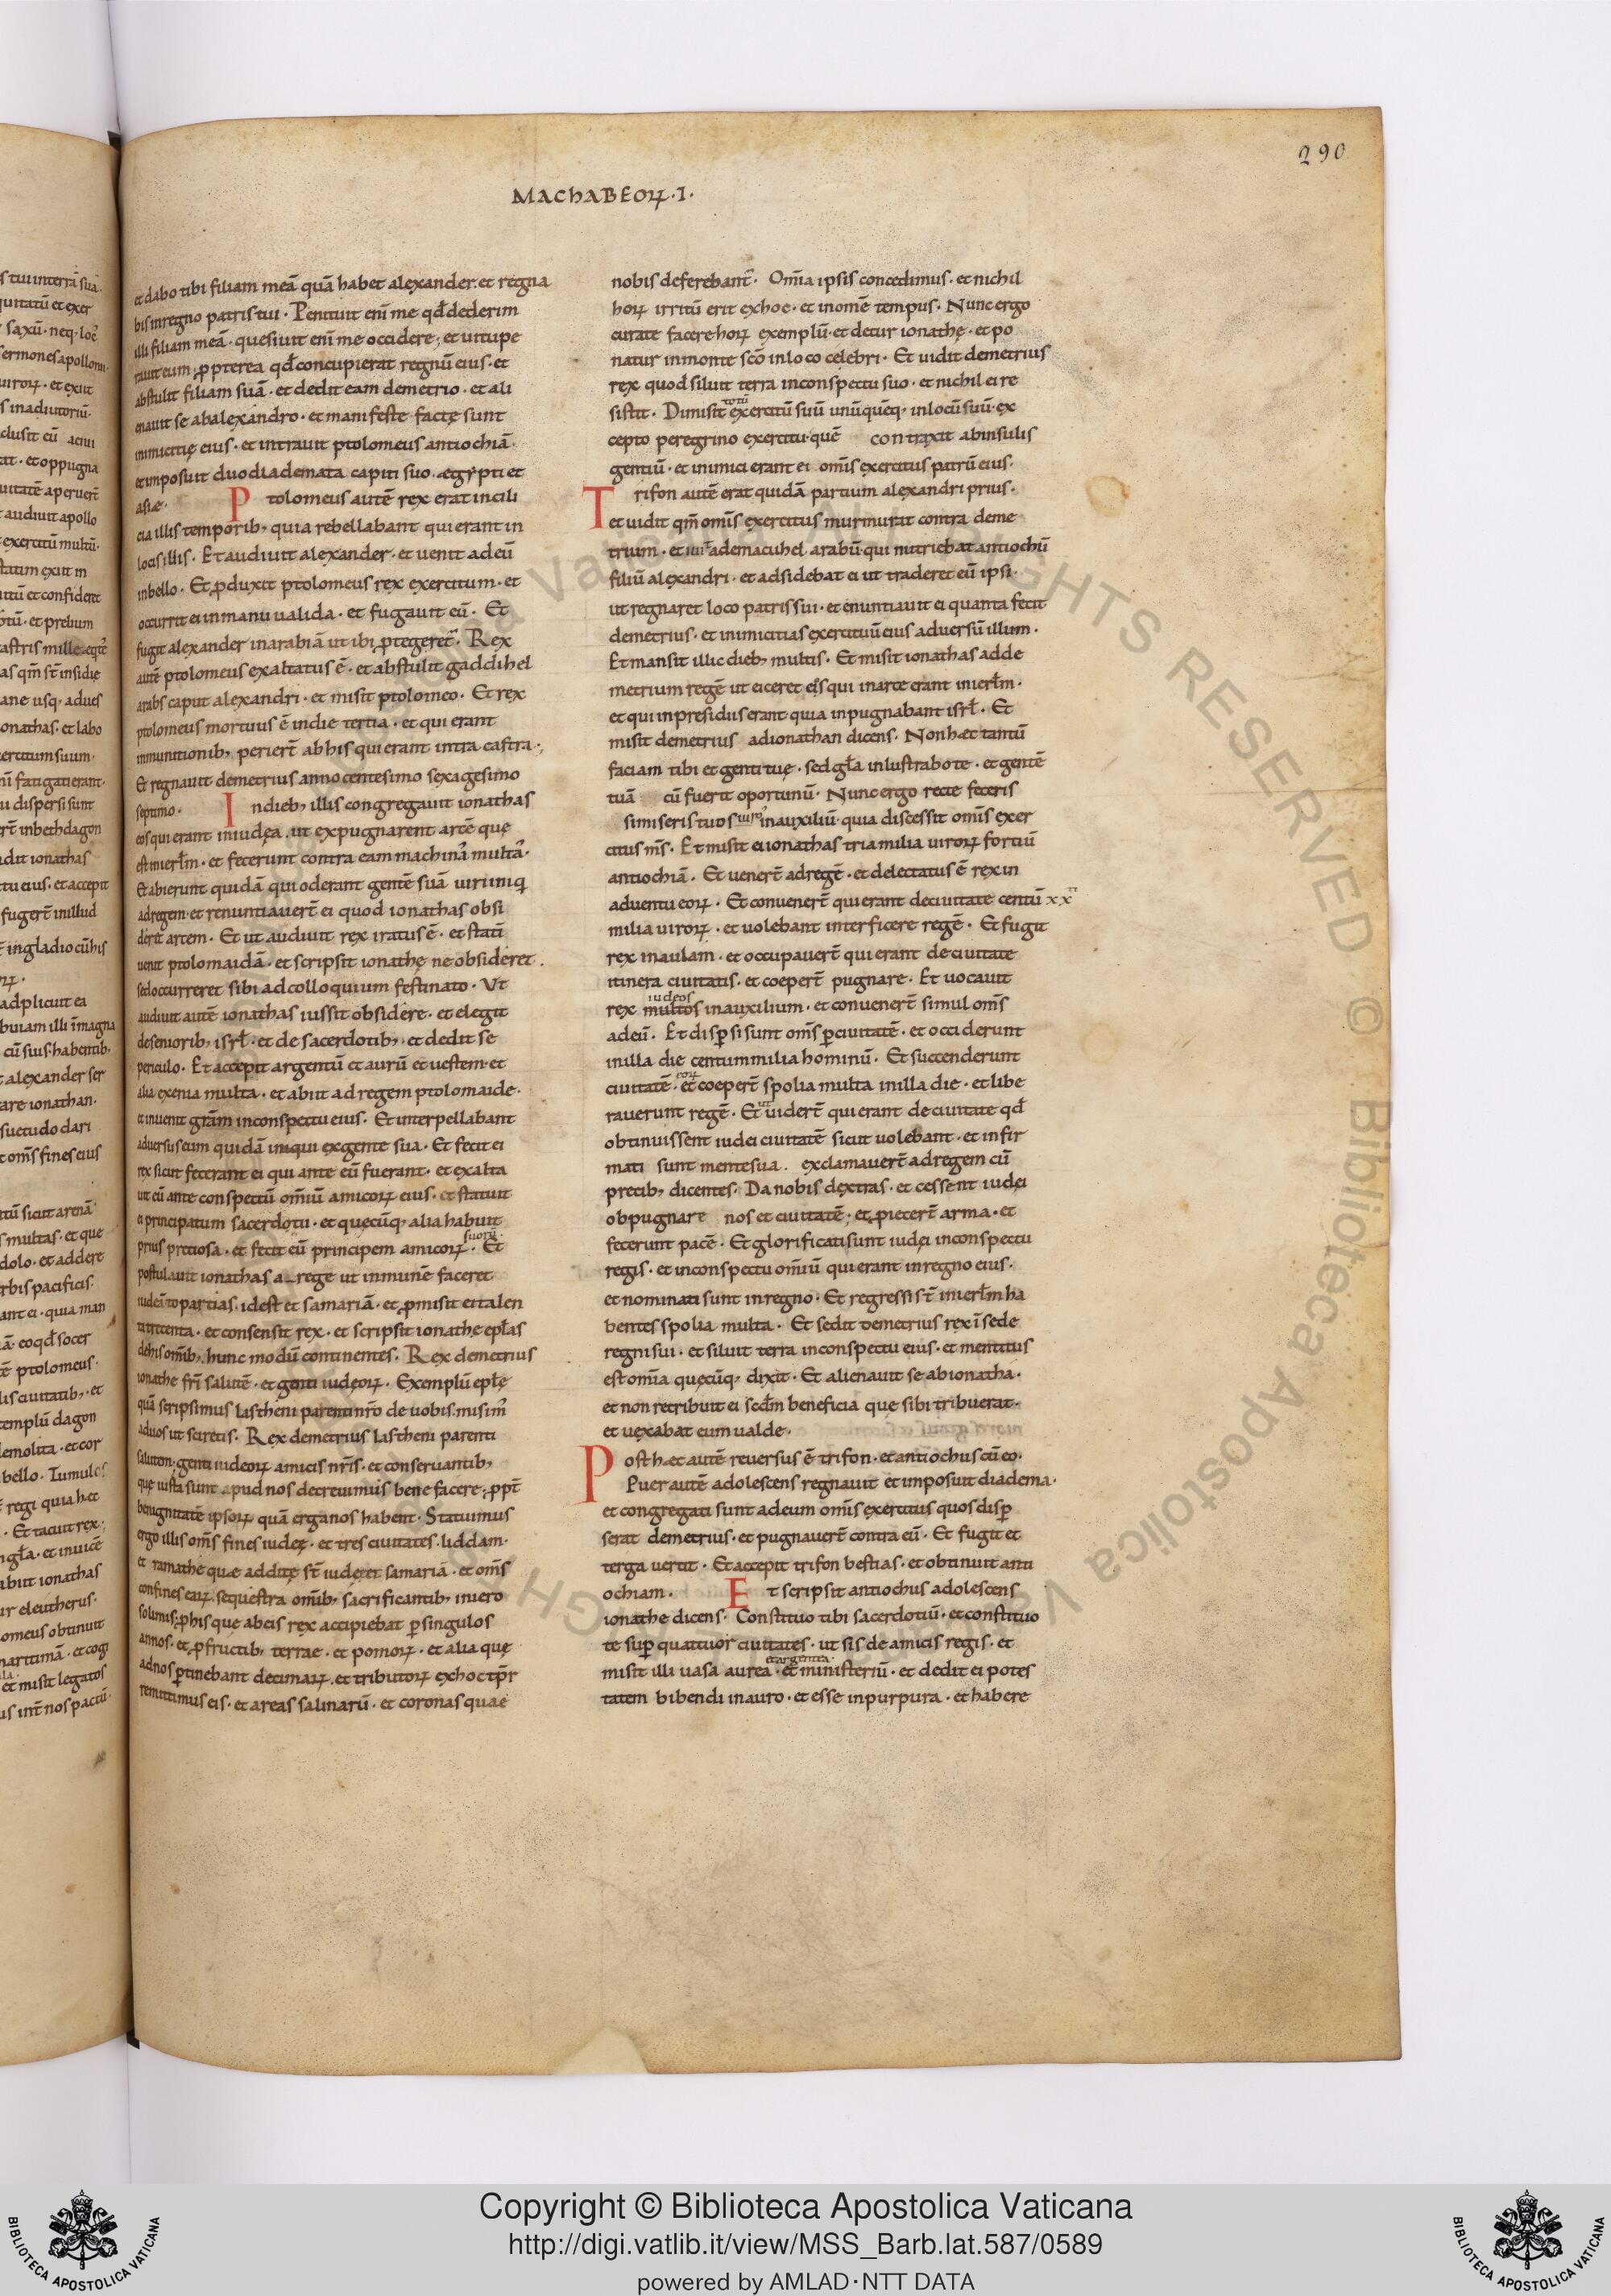 290
MACHABEOꝜ·I·
et dabo tibi filiam meā quā habet alexander. et regna
bis inregno patris tui· Penituit enī me qđ dederim
illi filiam meā· quesiuit enī me occidere; et uitupe
rauit eum; ꝓpterea qđ concupierat regnū eius· et
abstulit filiam suā· et dedit eam demetrio· et ali
enauit se abalexandro· et manifeste factę sunt
inimicitię eius· et intrauit ptolomeus antiochiā·
et imposuit duo diademata capiti suo. ægypti et
asiæ· Ptolomeus autē rex erat incili
cia illis temporib; quia rebellabant qui erant in
locis illis· Et audiuit alexander· et uenit ad eū
inbello· Et ꝓduxit ptolomeus rex exercitum· et
occurrit ei inmanu ualida· et fugauit eū· Et
fugit alexander inarabiā ut ibi ꝓtegeret̄· Rex
autē ptolomeus exaltatus ē· et abstulit gaddihel
arabs caput alexandri· et misit ptolomeo· Et rex
ptolomeus mortuus ē indie tertia· et qui erant
inmunitionib; perier̄t ab his qui erant intra castra·;
Et regnauit demetrius anno centesimo sexagesimo
septimo· Indieb; illis congregauit ionathas
eos qui erant iniudęa. ut expugnarent artē quę
est inierłm· et fecerunt contra eam machinā multā·
Et abierunt quidā qui oderant gentē suā uiri iniq̄
ad regem· et renuntiauer̄t ei quod ionathas obsi
derit artem· Et ut audiuit rex iratus ē· et statī
uenit ptolomaidā· et scripsit ionathę ne obsideret·
sed occurreret sibi ad colloquium festinato· Ut
audiuit autē ionathas iussit obsidere· et elegit
de seniorib; isrł· et de sacerdotib; et dedit se
periculo· Et accepit argentū et aurū et uestem· et
alia exenia multa· et abiit ad regem ptolomaide·
et inuenit grām inconspectu eius· Et interpellabant
aduersus eum quidā iniqui exgente sua· Et fecit ei
rex sicut fecerant ei qui ante eū fuerant· et exalta
uit eū ante conspectū omīū amicoꝝ eius· et statuit
ei principatum sacerdotii· et quęcūq; alia habuit
prius pretiosa· et fecit eū principem amicoꝝ suoꝝ· Et
postulauit ionathas a rege ut inmunē faceret
iudeā· toparctias· id est et samariā· et ꝓmisit ei talen
ta trecenta· et consensit rex· et scripsit ionathę epłas
de his omīb; hunc modū continentes· Rex demetrius
ionathe frī salutē· et genti iudęoꝝ· Exemplū epłę
quā scripsimus lastheni parenti nr̄o de uobis. misim᷒
ad uos ut sciretis· Rex demetrius lastheni parenti
salutem· genti iudeoꝝ amicis nr̄is· et conseruantib;
quę iusta sunt apud nos decreuimus bene facere; ꝓpt̄
benignitatē ipsoꝝ quā erga nos habent· Statuimus
ergo illis om̄s fines iudeę· et tres ciuitates· liddam·
et ramathe quæ additę st̄ iudęę et samariā· et om̄s
confines eaꝝ. sequestra omīb; sacrificantib; iniero
solimis; ꝓ his que ab eis rex accipiebat ꝑ singulos
annos· et ꝓ fructib; terrae· et pomoꝝ· et alia quę
ad nos ꝑtinebant decimaꝝ. et tributoꝝ exhoc tp̄r
remittimus eis· et areas salinarū· et coronas quae
nobis deferebant̄· Omīa ipsis concedimus· et nichil
hoꝝ irritū erit exhoc· et inomē tempus· Nunc ergo
curate facere hoꝝ exemplū· et detur ionathę· et po
natur inmonte sc̄o inloco celebri· Et uidit demetrius
rex quod siluit terra inconspectu suo· et nichil ei re
sistit· Dimisit totū exercitū suū unūquēq; inlocū suū· ex
cepto peregrino exercitu· quē contraxit abinsulis
gentiū· et inimici erant ei om̄is exercitus patrū eius·
Trifon autē erat quidā partium alexandri prius·
et uidit qm̄ om̄is exercitus murmurat contra deme
trium· et iuit ad emacuhel arabū· qui nutriebat antiochū
filiū alexandri· et adsidebat ei ut traderet eū ipsi·
ut regnaret loco patris sui· et enuntiauit ei quanta fecit
demetrius· et inimicitias exercituū eius aduersū illum·
Et mansit illic dieb; multis· Et misit ionathas ad de
metrium regē ut eiceret eos qui inarce erant inierłm·
et qui inpresidiis erant quia inpugnabant isrł· Et
misit demetrius ad ionathan dicens· Non hæc tantū
faciam tibi et genti tuę· sed głā inlustrabo te· et gentē
tuā cū fuerit oportunū· Nunc ergo recte feceris
si miseris tuos uiros inauxiliū· quia discessit om̄is exer
citus m̄s· Et misit ei ionathas tria milia uiroꝝ fortiū
antiochiā· Et uener̄t ad regē· et delectatus ē rex in
aduentu eoꝝ· Et conuener̄t qui erant deciuitate centū xx
milia uiroꝝ· et uolebant interficere regē· Et fugit
rex inaulam· et occupauer̄t qui erant de ciuitate
itinera ciuitatis· et coeper̄t pugnare· Et uocauit
rex iudeos multos inauxilium· et conuener̄t simul om̄s
ad eū· Et dispersi sunt om̄s ꝑciuitatē· et occiderunt
inilla die centum milia hominū· Et succenderunt
ciuitatē· et coeper̄t spolia multa inilla die· et libe
rauerunt regē· Et ut uider̄t qui erant deciuitate qđ
obtinuissent iudei ciuitatē sicut uolebant· et infir
mati sunt mente sua· exclamauer̄t ad regem cū
precib; dicentes· Da nobis dextras· et cessent iudęi
obpugnare nos et ciuitatē; et ꝓiecer̄t arma· et
fecerunt pacē· Et glorificati sunt iudęi inconspectu
regis· et inconspectu omīū qui erant inregno eius·
et nominati sunt inregno· Et regressi st̄ inierłm ha
bentes spolia multa· Et sedit demetrius rex ī sede
regni sui· et siluit terra inconspectu eius· et mentitus
est omīa quęcūq; dixit· Et alienauit se ab ionatha·
et non retribuit ei scđm beneficia que sibi tribuerat·
et uexabat eum ualde·
Post hæc autē reuersus ē trifon· et antiochus cū eo·
Puer autē adolescens regnauit et imposuit diadema·
et congregati sunt ad eum om̄is exercitus quos disꝑ
serat demetrius· et pugnauer̄t contra eū· Et fugit et
terga uertit· Et accepit trifon bestias· et obtinuit anti
ochiam· Et scripsit antiochus adolescens
ionathe dicens· Constituo tibi sacerdotiū· et constituo
te suꝑ quattuor ciuitates· ut sis de amicis regis· et
misit illi uasa aurea et argentea· et ministeriū· et dedit ei potes
tatem bibendi inauro· et esse inpurpura· et habere
Copyright © Biblioteca Apostolica Vaticana
http://digi.vatlib.it/view/MSS_Barb.lat.587/0589
powered by AMLAD·NTT DATA
BIBLIOTECA APOSTOLICA VATICANA
BIBLIOTECA APOSTOLICA VATICANA